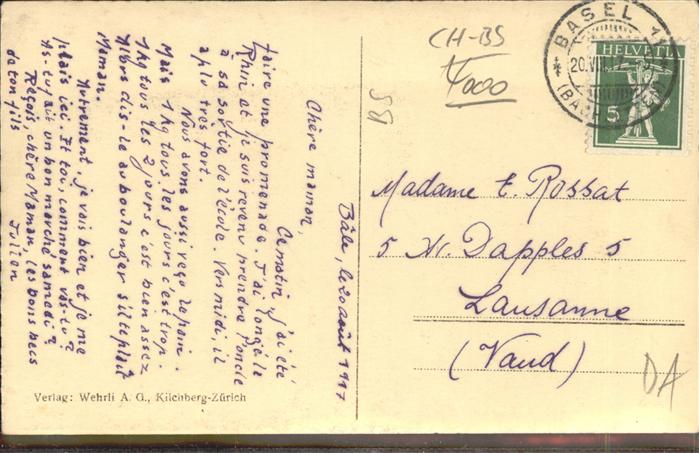 CH-BS
1/000
58
BASEL 1
20.VIII.17
HELVETIA
5
Bâle, le 20 août 1917
Chère maman,
Ce matin, j'ai été
faire une promenade. J'ai longé le
Rhin et je suis revenu prendre l'oncle
à sa sortie de l'école. Vers midi, il
a plu très fort.
Nous avons aussi reçu le pain.
Mais 1 kg tous les jours c'est trop.
1 kg tous les 2 jours c'est bien assez
Alors dis-le au boulanger s'il te plaît
Maman.
Autrement je vais bien et je me
plais ici. Et toi, comment vas-tu?
As-tu fait un bon marché samedi?
Reçois, chère Maman, les bons becs
de ton fils
Julien
Madame E. Rossat
5 Av. Dapples 5
Lausanne
(Vaud)
DA
Verlag: Wehrli A. G., Kilchberg-Zürich